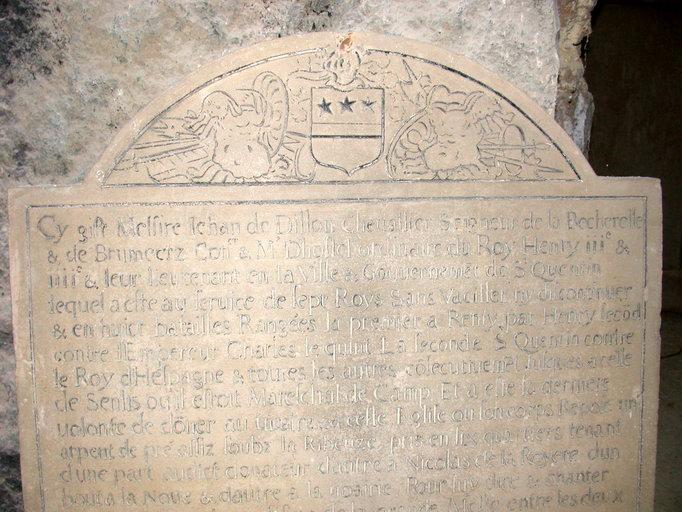 Cy gist Messire Iehan de Dillon Chevallier Seigneur de la Becherelle
& de Brumeerz Con.er & M.e Dhostel ordinaire du Roy Henry iii.e &
iiii.e & leur Lieutenant en la Ville & Gouvernemét de S.t Quentin
lequel a esté au service de sept Roys Sans Vaciller ny discontinuer
& en huict batailles Rangées la premier a Renty par Henry secōd
contre l'Empereur Charles le quint La seconde S.t Quentin contre
le Roy d'Hespagne & toutes les autres cōsecutivemēt jusques a celle
de Senlis ou il estoit Mareschal de Camp Et a esté sa derniere
volonté de dōner au vicaire de celle Eglise ou son corps Repose un
arpent de pré assiz soubz la pris en les tenant
d'une part audict donateur d'autre a Nicolas de la Royere d'un
bout a la Noue & d'autre a la Pour luy dire & chanter
de la grande Messe entre les deux